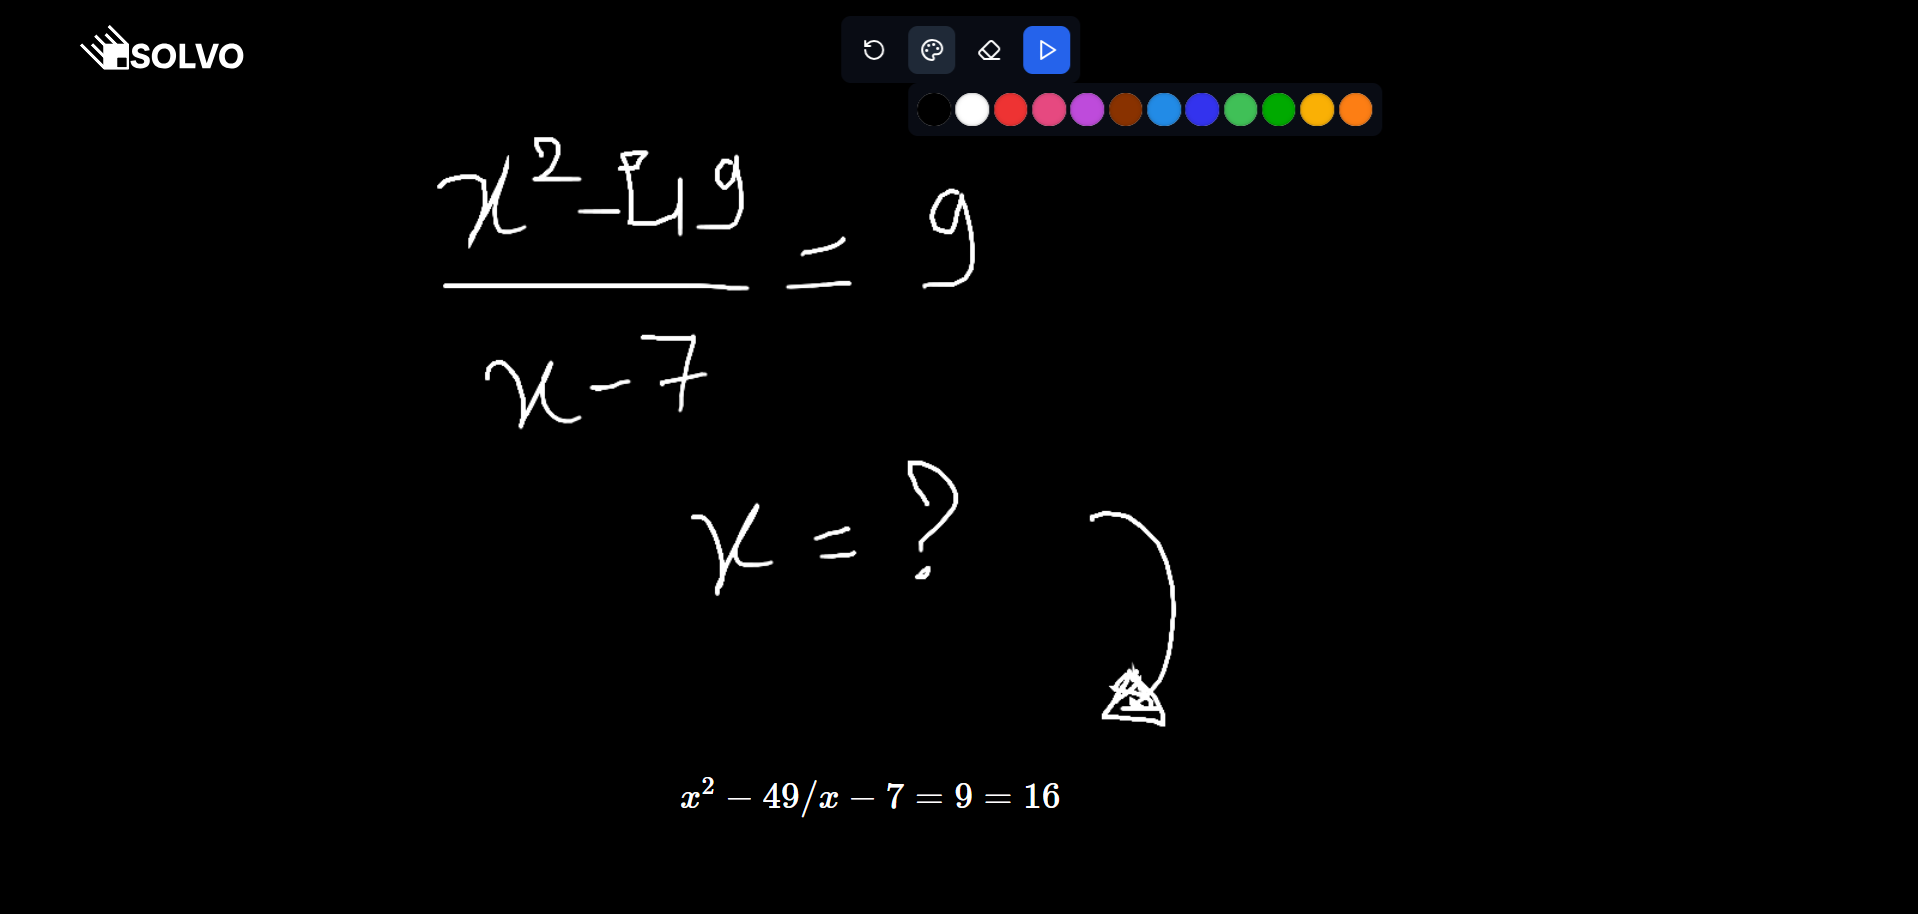 SOLVO
x² - 49
= 9
x - 7
x = ?
x² − 49/x − 7 = 9 = 16